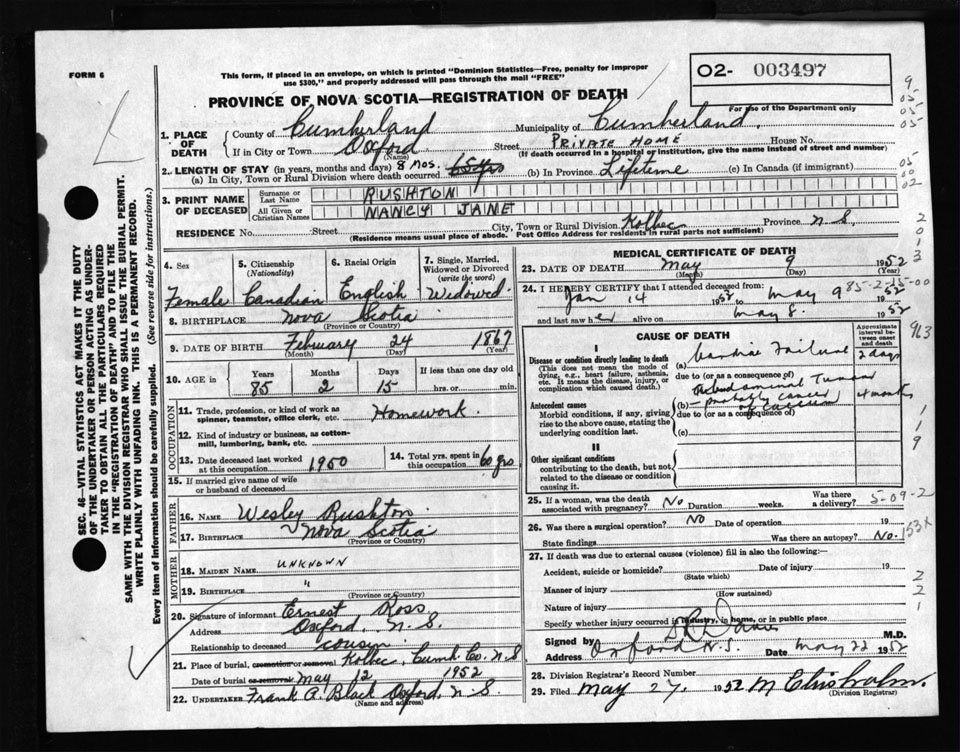 FORM 6
This form, if placed in an envelope, on which is printed "Dominion Statistics—Free, penalty for improper
use $300," and properly addressed will pass through the mail "FREE"
O2- 003497
PROVINCE OF NOVA SCOTIA—REGISTRATION OF DEATH
For use of the Department only
1. PLACE OF DEATH
County of Cumberland Municipality of Cumberland.
If in City or Town Oxford Street PRIVATE HOME House No.
(Name) (If death occurred in a hospital or institution, give the name instead of street and number)
2. LENGTH OF STAY (in years, months and days) 8 Mos.
(a) In City, Town or Rural Division where death occurred 65 yrs (b) In Province Lifetime (c) In Canada (if immigrant)
3. PRINT NAME OF DECEASED
Surname or Last Name RUSHTON
All Given or Christian Names NANCY JANE
RESIDENCE No. Street City, Town or Rural Division Kolbec Province N.S.
(Residence means usual place of abode. Post Office Address for residents in rural parts not sufficient)
4. Sex Female
5. Citizenship (Nationality) Canadian
6. Racial Origin English
7. Single, Married, Widowed or Divorced (write the word) Widowed
8. BIRTHPLACE Nova Scotia
(Province or Country)
9. DATE OF BIRTH February 24 1867
(Month) (Day) (Year)
10. AGE in Years Months Days If less than one day old
85 2 15 hrs. or min.
OCCUPATION
11. Trade, profession, or kind of work as spinner, teamster, office clerk, etc. Homework.
12. Kind of industry or business, as cotton-mill, lumbering, bank, etc.
13. Date deceased last worked at this occupation 1950
14. Total yrs. spent in this occupation 60 yrs
15. If married give name of wife or husband of deceased
FATHER
16. Name Wesley Rushton
17. Birthplace Nova Scotia
(Province or Country)
MOTHER
18. Maiden Name UNKNOWN
19. Birthplace "
(Province or Country)
20. Signature of informant Ernest Ross
Address Oxford, N.S.
Relationship to deceased cousin
21. Place of burial, cremation or removal Kolbec, Cumb. Co. N.S
Date of burial or removal May 12 1952
22. UNDERTAKER Frank A. Black Oxford, N.S.
(Name and address)
MEDICAL CERTIFICATE OF DEATH
23. DATE OF DEATH May 9 1952
(Month) (Day) (Year)
24. I HEREBY CERTIFY that I attended deceased from:
Jan 14 1952 to May 9 1952
and last saw her alive on May 8. 1952
CAUSE OF DEATH
Approximate interval between onset and death
I
Disease or condition directly leading to death
(This does not mean the mode of dying, e.g., heart failure, asthenia, etc. It means the disease, injury, or complication which caused death.)
(a) Cardiac Failure 2 days
due to (or as a consequence of)
Antecedent causes
Morbid conditions, if any, giving rise to the above cause, stating the underlying condition last.
Abdominal Tumour
(b) probably cancer
due to (or as a consequence of)
(c)
II
Other significant conditions
contributing to the death, but not related to the disease or condition causing it.
25. If a woman, was the death associated with pregnancy? No Duration weeks. Was there a delivery?
26. Was there a surgical operation? NO Date of operation 19
State findings Was there an autopsy? No.
27. If death was due to external causes (violence) fill in also the following:—
Accident, suicide or homicide? Date of injury 19
(State which)
Manner of injury
(How sustained)
Nature of injury
Specify whether injury occurred in industry, in home, or in public place
Signed by M.D.
Address Oxford N.S. Date May 22 1952
28. Division Registrar's Record Number
29. Filed May 27. 1952 M Chisholm.
(Division Registrar)
SEC. 46—VITAL STATISTICS ACT MAKES IT THE DUTY
OF THE UNDERTAKER OR PERSON ACTING AS UNDER-
TAKER TO OBTAIN ALL THE PARTICULARS REQUIRED
IN THE "REGISTRATION OF DEATH" AND TO FILE THE
SAME WITH THE DIVISION REGISTRAR WHO SHALL ISSUE THE BURIAL PERMIT.
WRITE PLAINLY WITH UNFADING INK. THIS IS A PERMANENT RECORD.
Every item of information should be carefully supplied. (See reverse side for instructions.)